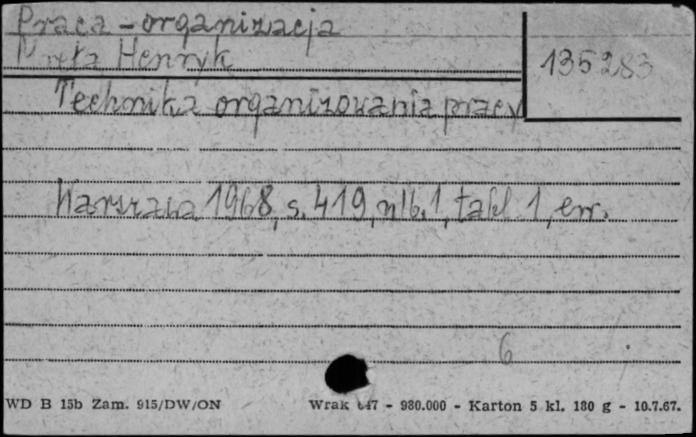 Praca - organizacja
Henryk
135283
Technika organizowania pracy
Warszawa 1968, s. 419, nlb. 1, tabl 1, err.
6
WD B 15b Zam. 915/DW/ON
Wrak - 980.000 - Karton 5 kl. 180 g - 10.7.67.